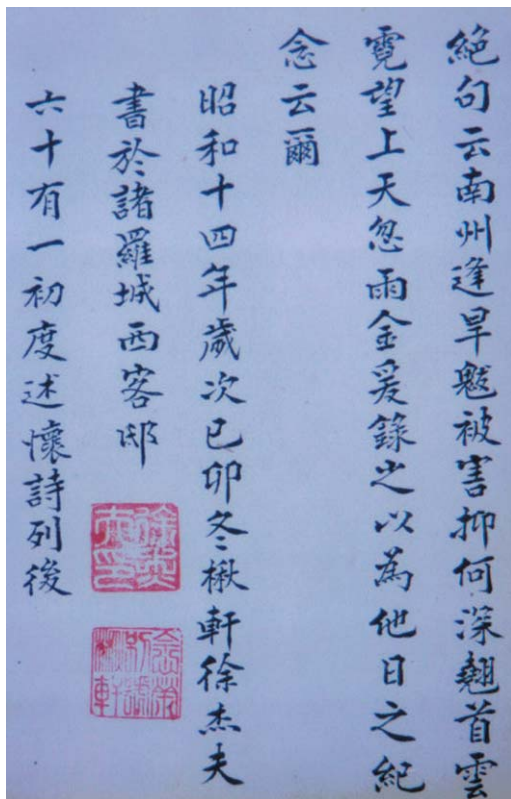 絕句云南州逢旱魃被害抑何深翹首雲
霓望上天忽雨金爰錄之以為他日之紀
念云爾
昭和十四年歲次己卯冬楸軒徐杰夫
書於諸羅城西客邸
六十有一初度述懷詩列後